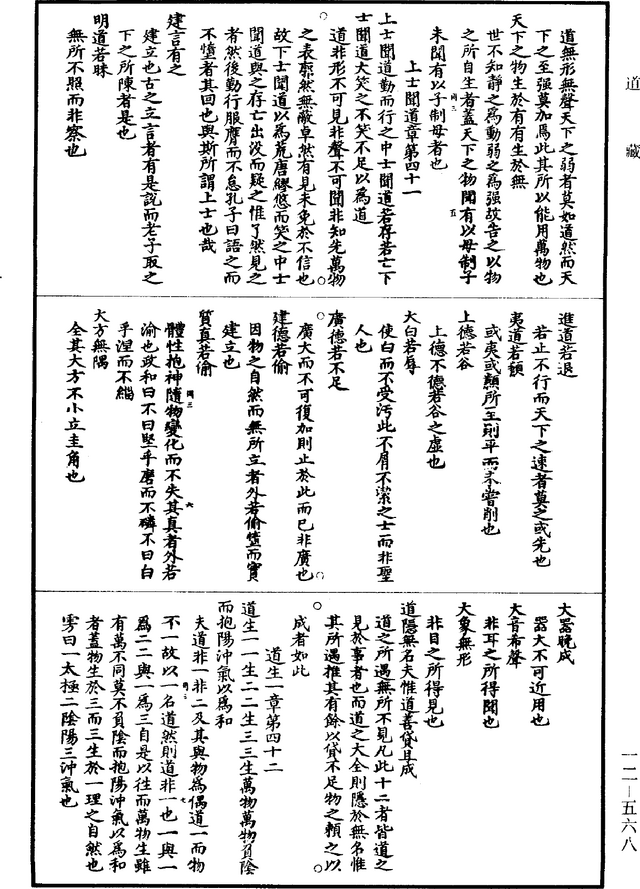 道藏
道無形無聲天下之弱者莫如道然而天
下之至强莫加焉此其所以能用萬物也
天下之物生於有有生於無
世不知靜之為動弱之為强故告之以物
之所自生者蓋天下之物聞有以母制子
未聞有以子制母者也
上士聞道章第四十一
上士聞道勤而行之中士聞道若存若亡下
士聞道大笑之不笑不足以為道
道非形不可見非聲不可聞非知先萬物
之表廓然無蔽卓然有見未免於不信也
故下士聞道以為荒唐繆悠而笑之中士
聞道與之存亡出没而疑之惟了然見之
者然後勤行服膺而不怠孔子曰語之而
不憧者其回也與斯所謂上士也哉
建言有之
建立也古之立言者有是説而老子取之
下之所陳者是也
明道若昧
無所不照而非察也
進道若退
若止不行而天下之速者莫之或先也
夷道若纇
或夷或纇所至則平而未嘗削也
上德若谷
上德不德若谷之虛也
大白若辱
使白而不受汚此不屑不潔之士而非聖
人也
廣德若不足
廣大而不可復加則止於此而已非廣也
建德若偷
因物之自然而無所立者外若偷惰而實
建立也
質真若偷
體性抱神隨物變化而不失其真者外若
渝也政和曰不曰堅乎磨而不磷不曰白
乎涅而不緇
大方無隅
全其大方不小立圭角也
大器晚成
器大不可近用也
大音希聲
非耳之所得聞也
大象無形
非目之所得見也
道隱無名夫惟道善貸且成
道之所遇無所不見凡此十二者皆道之
見於事者也而道之大全則隱於無名惟
其所遇推其有餘以貸不足物之賴之以
成者如此
道生一章第四十二
道生一一生二二生三三生萬物萬物負陰
而抱陽沖氣以為和
夫道非一非二及其與物為偶道一而物
不一故以一名道然則道非一也一與一
為二二與一為三自是以往而萬物生雖
有萬不同莫不負陰而抱陽沖氣以為和
者蓋物生於三而三生於一理之自然也
雱曰一太極二陰陽三沖氣也
一二—五六八